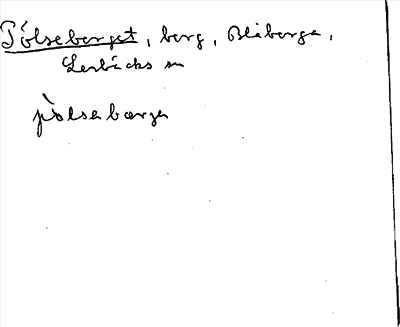 Pölseberget, berg, Blåberga,
Lerbäcks sn
pö̀lsebærge